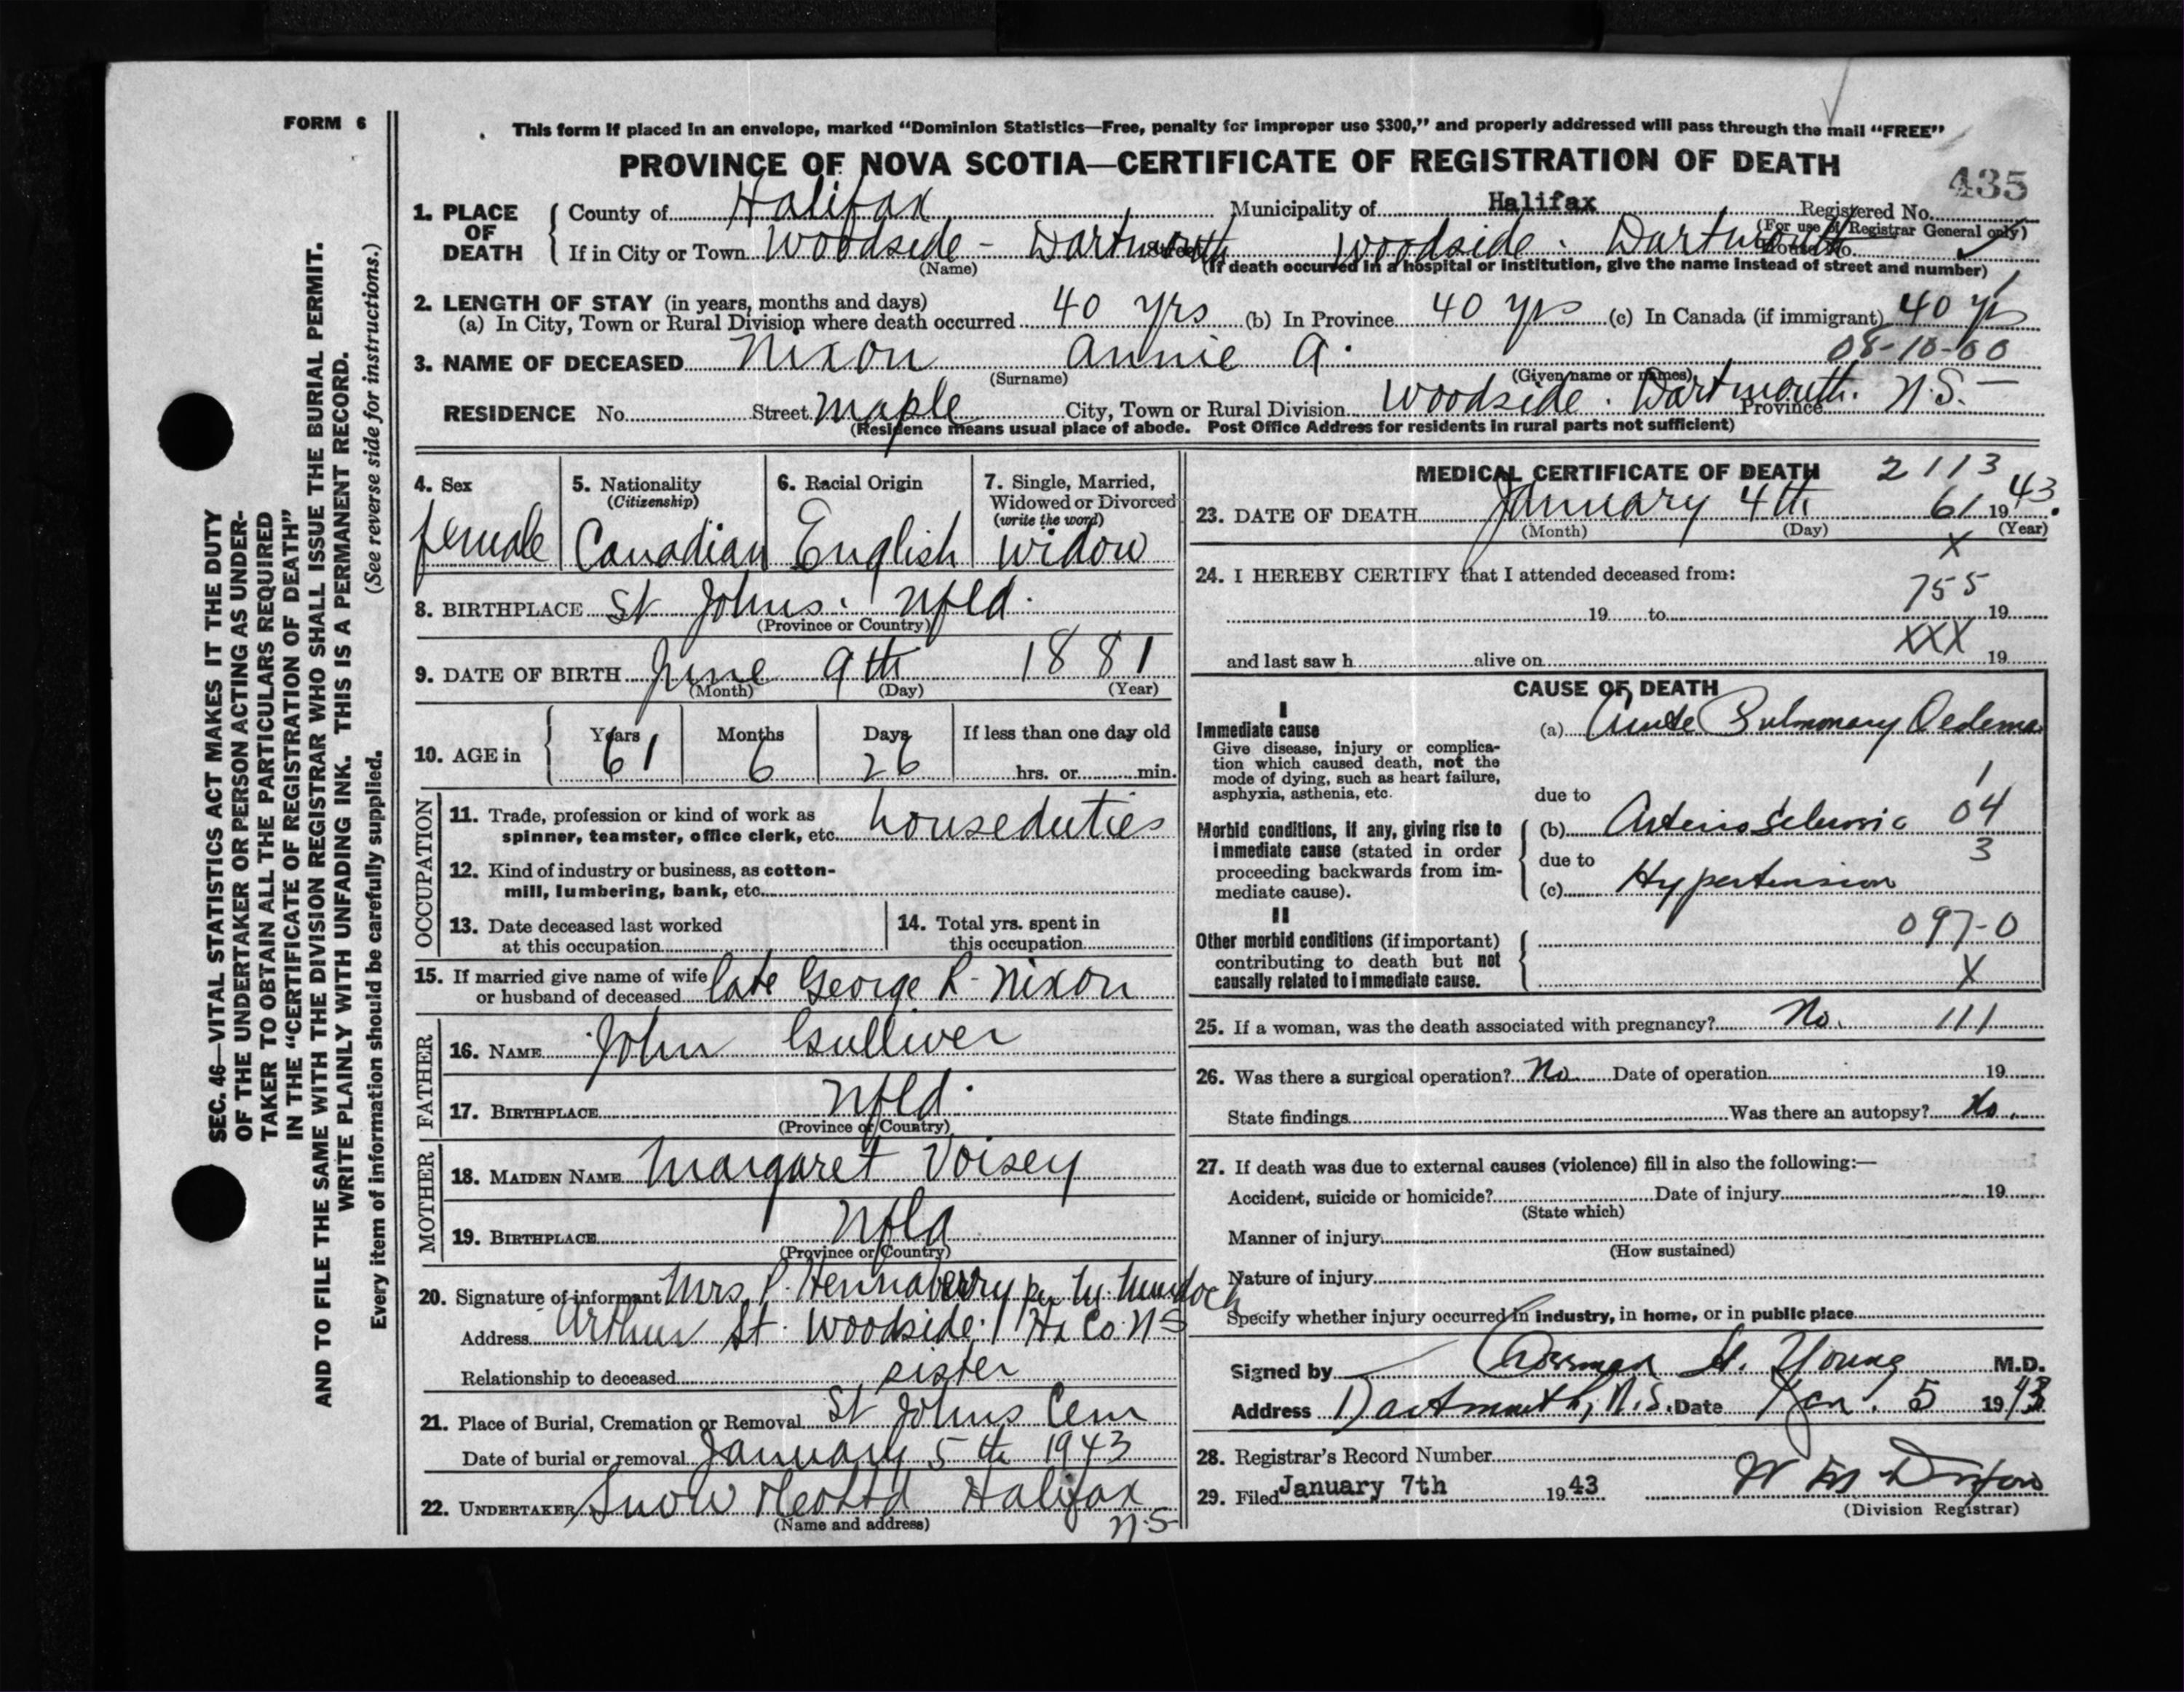 FORM 6
This form if placed in an envelope, marked “Dominion Statistics—Free, penalty for improper use $300,” and properly addressed will pass through the mail “FREE”
PROVINCE OF NOVA SCOTIA—CERTIFICATE OF REGISTRATION OF DEATH
435
1. PLACE OF DEATH { County of Halifax Municipality of Halifax Registered No.
(For use of Registrar General only)
If in City or Town Woodside - Dartmouth Street Woodside. Dartmouth House No.
(Name) (If death occurred in a hospital or institution, give the name instead of street and number)
2. LENGTH OF STAY (in years, months and days)
(a) In City, Town or Rural Division where death occurred 40 yrs (b) In Province 40 yrs (c) In Canada (if immigrant) 40 yrs
3. NAME OF DECEASED Nixon Annie A. 08-10-00
(Surname) (Given name or names)
RESIDENCE No. Street Maple City, Town or Rural Division Woodside. Dartmouth. Province N.S.
(Residence means usual place of abode. Post Office Address for residents in rural parts not sufficient)
4. Sex female
5. Nationality (Citizenship) Canadian
6. Racial Origin English
7. Single, Married, Widowed or Divorced (write the word) widow
8. BIRTHPLACE St Johns. Nfld.
(Province or Country)
9. DATE OF BIRTH June 9th 1881
(Month) (Day) (Year)
10. AGE in { Years 61 Months 6 Days 26 If less than one day old
hrs. or min.
OCCUPATION
11. Trade, profession or kind of work as
spinner, teamster, office clerk, etc. house duties
12. Kind of industry or business, as cotton-
mill, lumbering, bank, etc.
13. Date deceased last worked
at this occupation
14. Total yrs. spent in
this occupation
15. If married give name of wife
or husband of deceased late George R. Nixon
FATHER
16. NAME John Gulliver
17. BIRTHPLACE Nfld.
(Province or Country)
MOTHER
18. MAIDEN NAME Margaret Voisey
19. BIRTHPLACE Nfld
(Province or Country)
20. Signature of informant Mrs P. Hennaberry per M Murdoch
Address Arthur St. Woodside. Hx Co. N S
Relationship to deceased sister
21. Place of Burial, Cremation or Removal St Johns Cem
Date of burial or removal January 5th 1943
22. UNDERTAKER Snow & Co Ltd Halifax
(Name and address) N.S
MEDICAL CERTIFICATE OF DEATH 2113
23. DATE OF DEATH January 4th 61 1943.
(Month) (Day) (Year)
X
24. I HEREBY CERTIFY that I attended deceased from:
755
19 to 19
XXX
and last saw h alive on 19
CAUSE OF DEATH
I
Immediate cause
Give disease, injury or complica-
tion which caused death, not the
mode of dying, such as heart failure,
asphyxia, asthenia, etc.
(a) Acute Pulmonary Oedema
1
due to
Morbid conditions, if any, giving rise to
immediate cause (stated in order
proceeding backwards from im-
mediate cause).
(b) 04
due to 3
(c) Hypertension
II
Other morbid conditions (if important)
contributing to death but not
causally related to immediate cause.
097-0
X
25. If a woman, was the death associated with pregnancy? No. 111
26. Was there a surgical operation? No Date of operation 19
State findings Was there an autopsy? No.
27. If death was due to external causes (violence) fill in also the following:—
Accident, suicide or homicide? Date of injury 19
(State which)
Manner of injury
(How sustained)
Nature of injury
Specify whether injury occurred in industry, in home, or in public place
Signed by H. Young M.D.
Address Dartmouth, N.S. Date Jan. 5 1943
28. Registrar's Record Number
29. Filed January 7th 1943
(Division Registrar)
SEC. 46—VITAL STATISTICS ACT MAKES IT THE DUTY
OF THE UNDERTAKER OR PERSON ACTING AS UNDER-
TAKER TO OBTAIN ALL THE PARTICULARS REQUIRED
IN THE “CERTIFICATE OF REGISTRATION OF DEATH”
AND TO FILE THE SAME WITH THE DIVISION REGISTRAR WHO SHALL ISSUE THE BURIAL PERMIT.
WRITE PLAINLY WITH UNFADING INK. THIS IS A PERMANENT RECORD.
Every item of information should be carefully supplied. (See reverse side for instructions.)